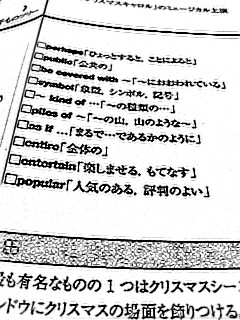 クリスマスキャロル」のミュージカル上演
□perhaps「ひょっとすると，ことによると」
□public「公共の」
□be covered with ～「～におおわれている」
□symbol「象徴，シンボル，記号」
□～ kind of …「～の種類の…」
□piles of ～「～の山，山のような～」
□as if …「まるで…であるかのように」
□entire「全体の」
□entertain「楽しませる，もてなす」
□popular「人気のある，評判のよい」
も有名なものの 1 つはクリスマスシー
ンドウにクリスマスの場面を飾りつける